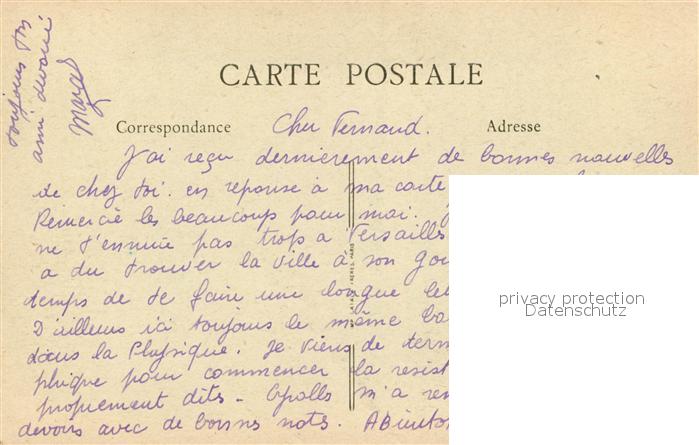 CARTE POSTALE
Correspondance
Adresse
Cher Fernand.
J'ai reçu dernièrement de bonnes nouvelles
de chez toi. en réponse à ma carte
Remercie les beaucoup pour moi.
ne t'ennuie pas trop a Versailles
a du trouver la ville à son
temps de te faire une longue
D'ailleurs ici toujours le même
dans la Physique. Je viens de
phique pour commencer la
propement dite - m'a
devoirs avec de bonnes nots. A Bientot
toujours ton
ami dévoué
privacy protection
Datenschutz